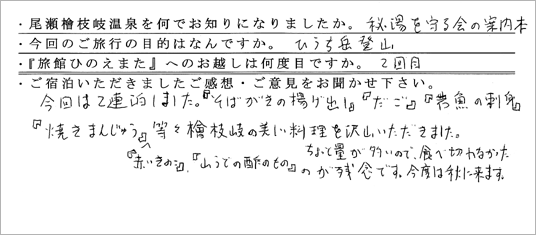 ・尾瀬檜枝岐温泉を何でお知りになりましたか。 秘湯を守る会の案内本
・今回のご旅行の目的はなんですか。 ひうち岳登山
・『旅館ひのえまた』へのお越しは何度目ですか。 2回目
・ご宿泊いただきましたご感想・ご意見をお聞かせ下さい。
今回は2連泊しました。『そばがきの揚げ出し』『だんご』『岩魚の刺身』
『焼きまんじゅう』等々檜枝岐の美い料理を沢山いただきました。
『赤いきのこ』、『山うどの酢のもの』 ちょっと量が多いので、食べ切れなかった
のが残念です。今度は秋に来ます。